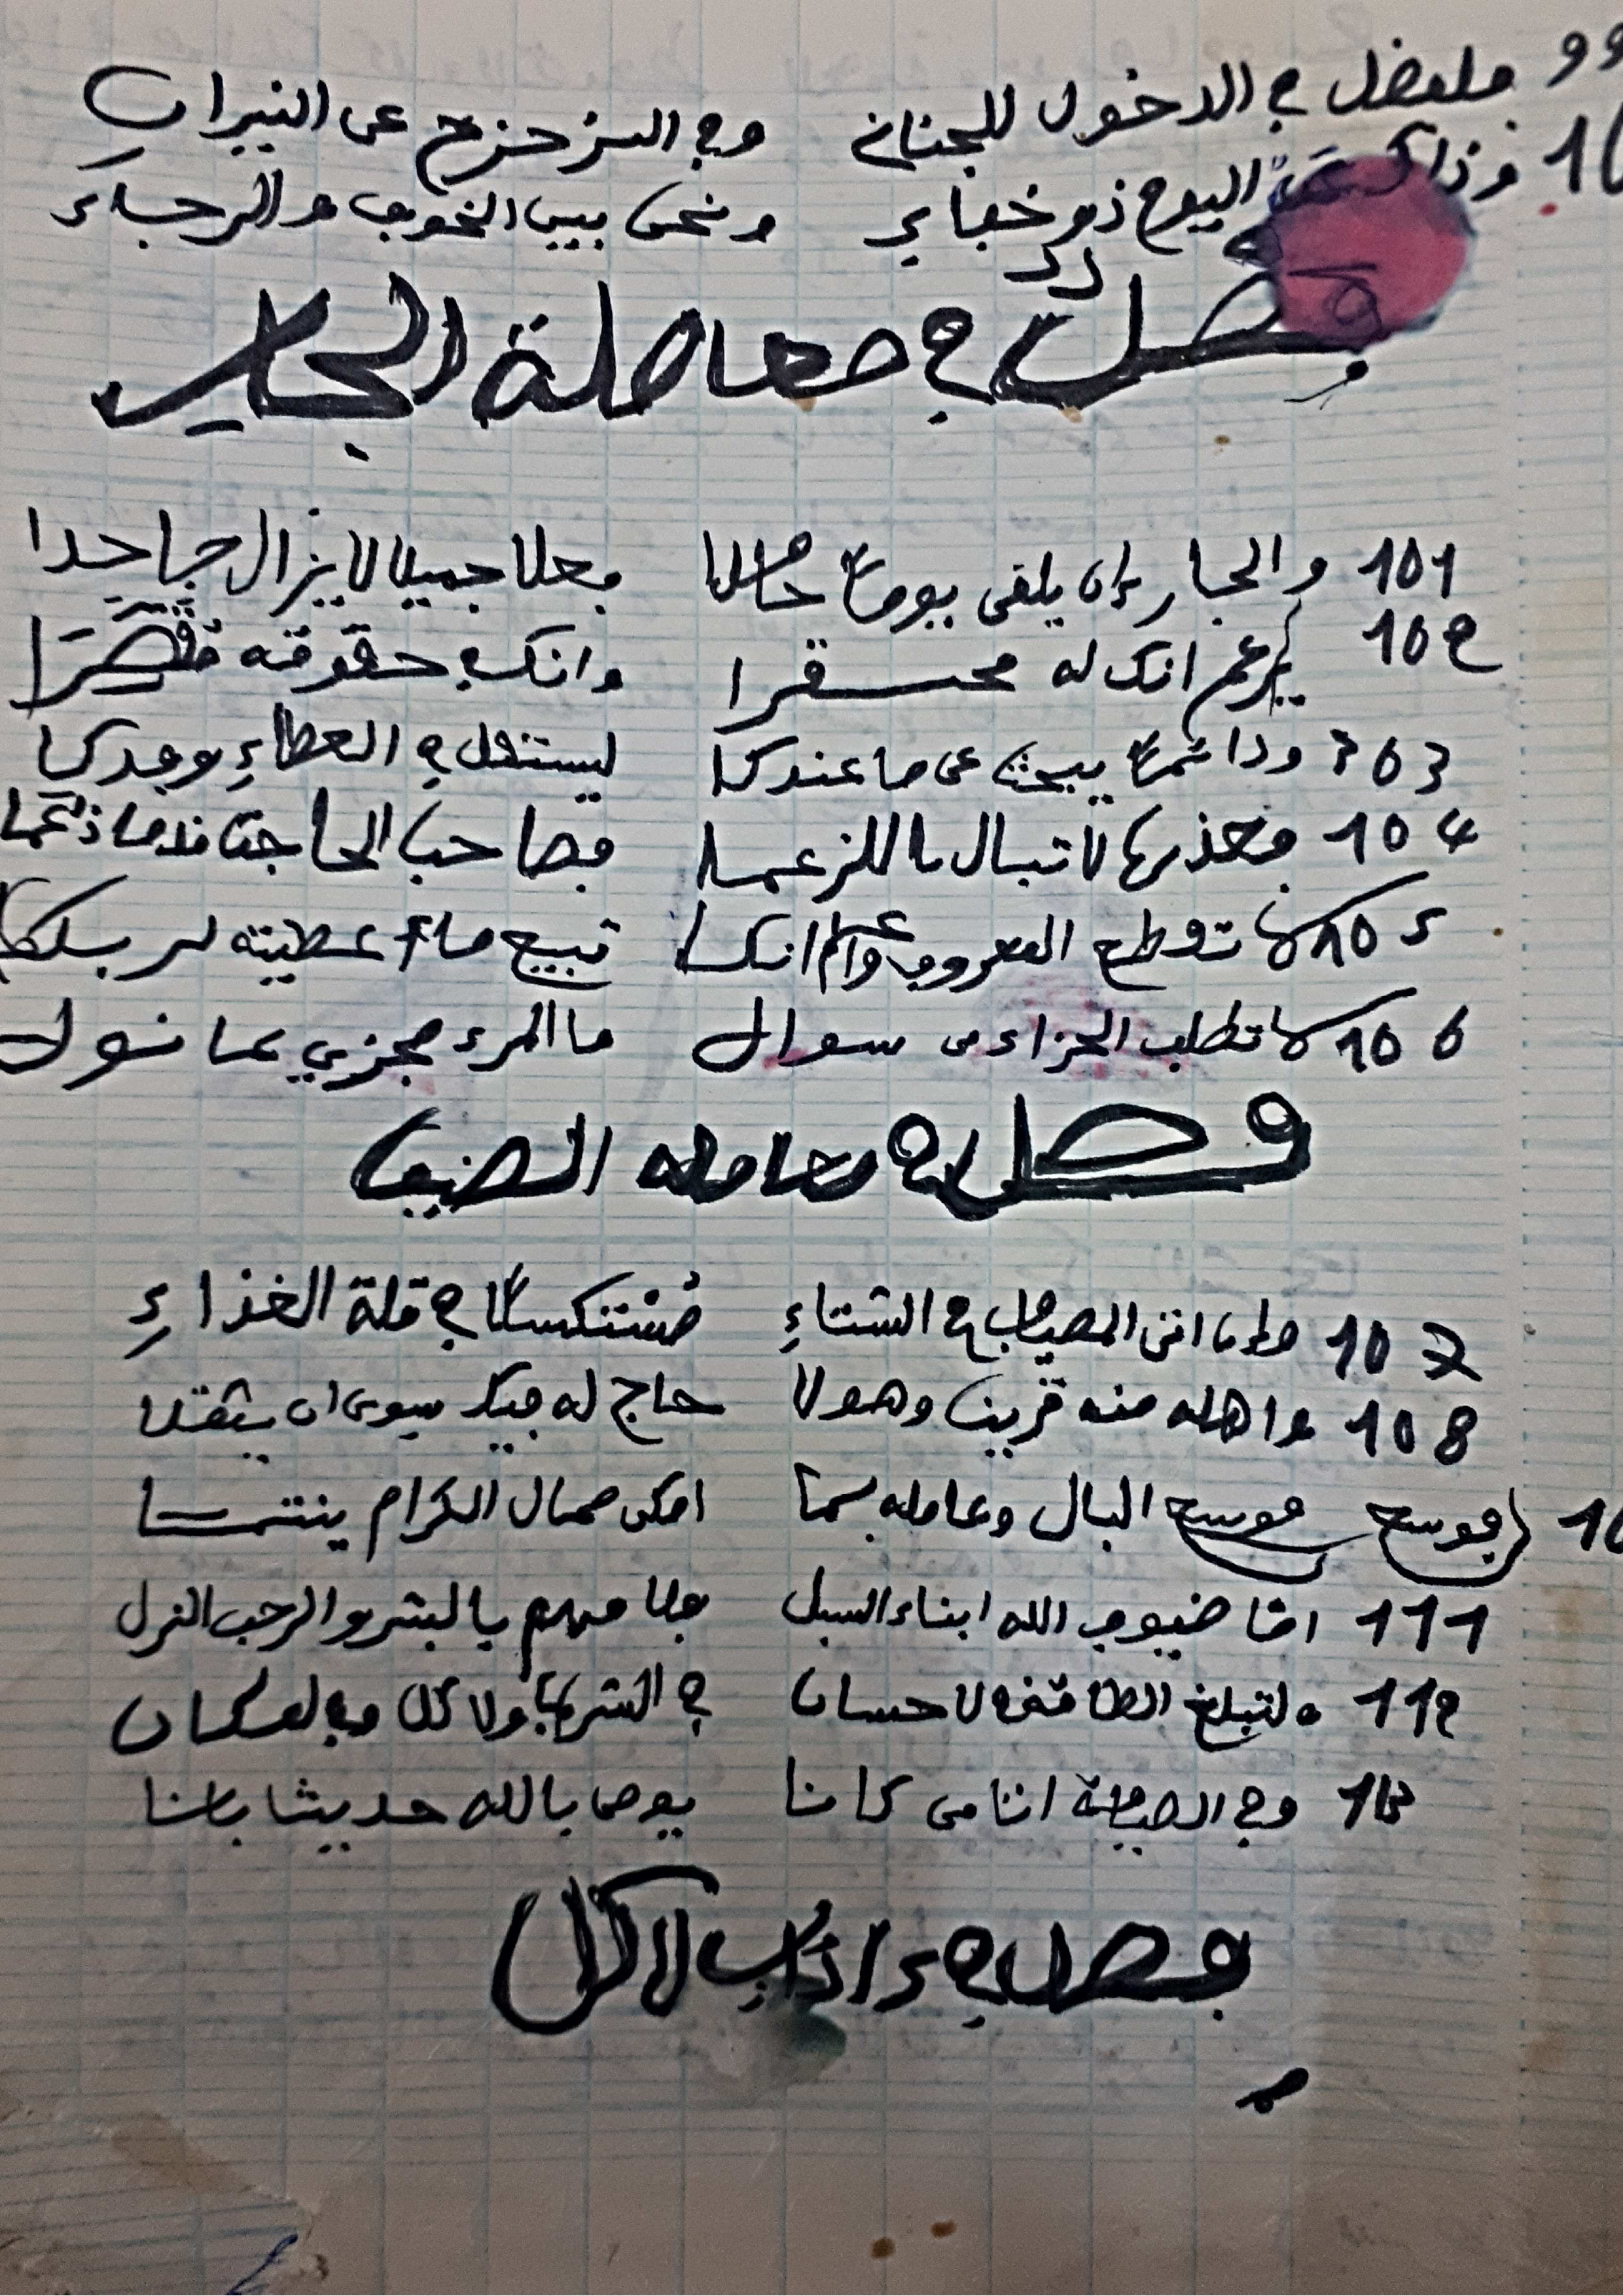 99 فلفضل في الدخول للجنان وفي التزحزح عن النيران
وذاك اليوم ذو خفاء ونحن بين الخوف والرجاء
فصل في معاملة الجار
101 والجار إن يلقى يوما فعلا جميلا لا يزال جاحدا
102 يزعم انك له محتقرا وانك في حقوقه مقصرا
103 ودائما يبحث عن ما عندكا ليستقل في العطاء وجدكا
104 لا تبال بالزعما فصاحب الحاجة
105 لا تقطع المعروف واعلم انكا تبيع ما أعطيته لربكا
106 لا تطلب الجزاء من سوال ما المرء مجزي بما نوال
فصل في معاملة الضيف
107 وإن اتى المصياف في الشتاء مستنكسا في قلة الغذاء
108 واهله منه قريب وهو لا حاج له فيك سوى ان يثقلا
فوسع فوسع البال وعامله بما امكن من مال الكرام ينتما
111 اما ضيوف الله ابناء السبل فلاقهم بالبشر والرحب النزل
112 ولتبلغ الطاقة في الاحسان في الشرب والاكل وفي المكان
113 وفي الضيافة اتنا من كانا يومن بالله حديثا بانا
فصل في ءاداب الاكل